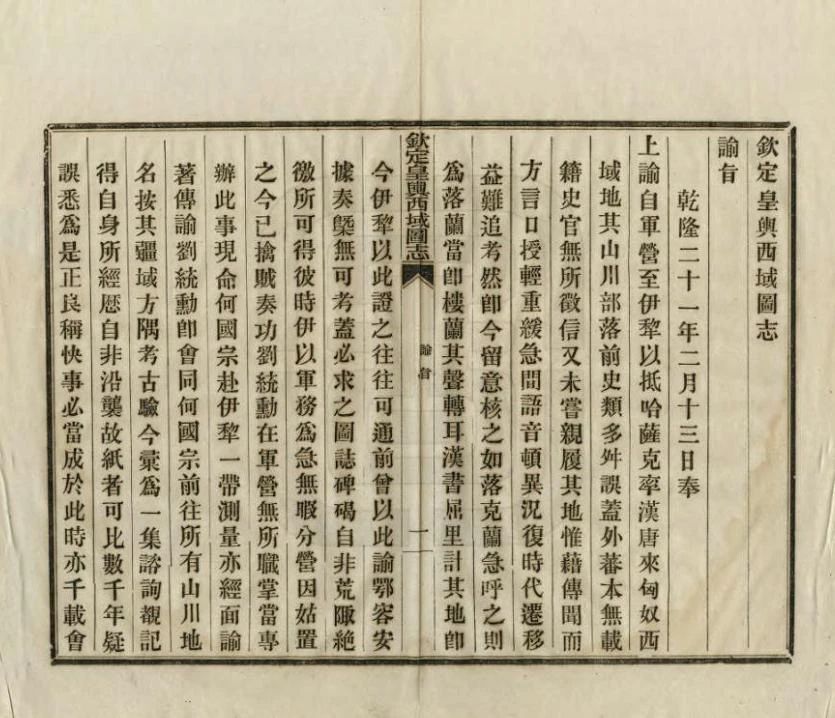 欽定皇輿西域圖志
諭旨
乾隆二十一年二月十三日奉
上諭自軍營至伊犁以抵哈薩克率漢唐來匈奴西
域地其山川部落前史類多舛誤蓋外蕃本無載
籍史官無所徵信又未嘗親履其地惟藉傳聞而
方言口授輕重緩急間語音頓異況復時代遷移
益難追考然卽今留意核之如落克蘭急呼之則
爲落蘭當卽樓蘭其聲轉耳漢書屈里計其地卽
欽定皇輿西域圖志
諭旨
一
今伊犁以此證之往往可通前曾以此諭鄂容安
據奏槩無可考蓋必求之圖誌碑碣自非荒陬絶
徼所可得彼時伊以軍務爲急無暇分營因姑置
之今已擒賊奏功劉統勳在軍營無所職掌當專
辦此事現命何國宗赴伊犁一帶測量亦經面諭
著傳諭劉統勳卽會同何國宗前往所有山川地
名按其疆域方隅考古驗今彙爲一集諮詢覩記
得自身所經歷自非沿襲故紙者可比數千年疑
誤悉爲是正良稱快事必當成於此時亦千載會